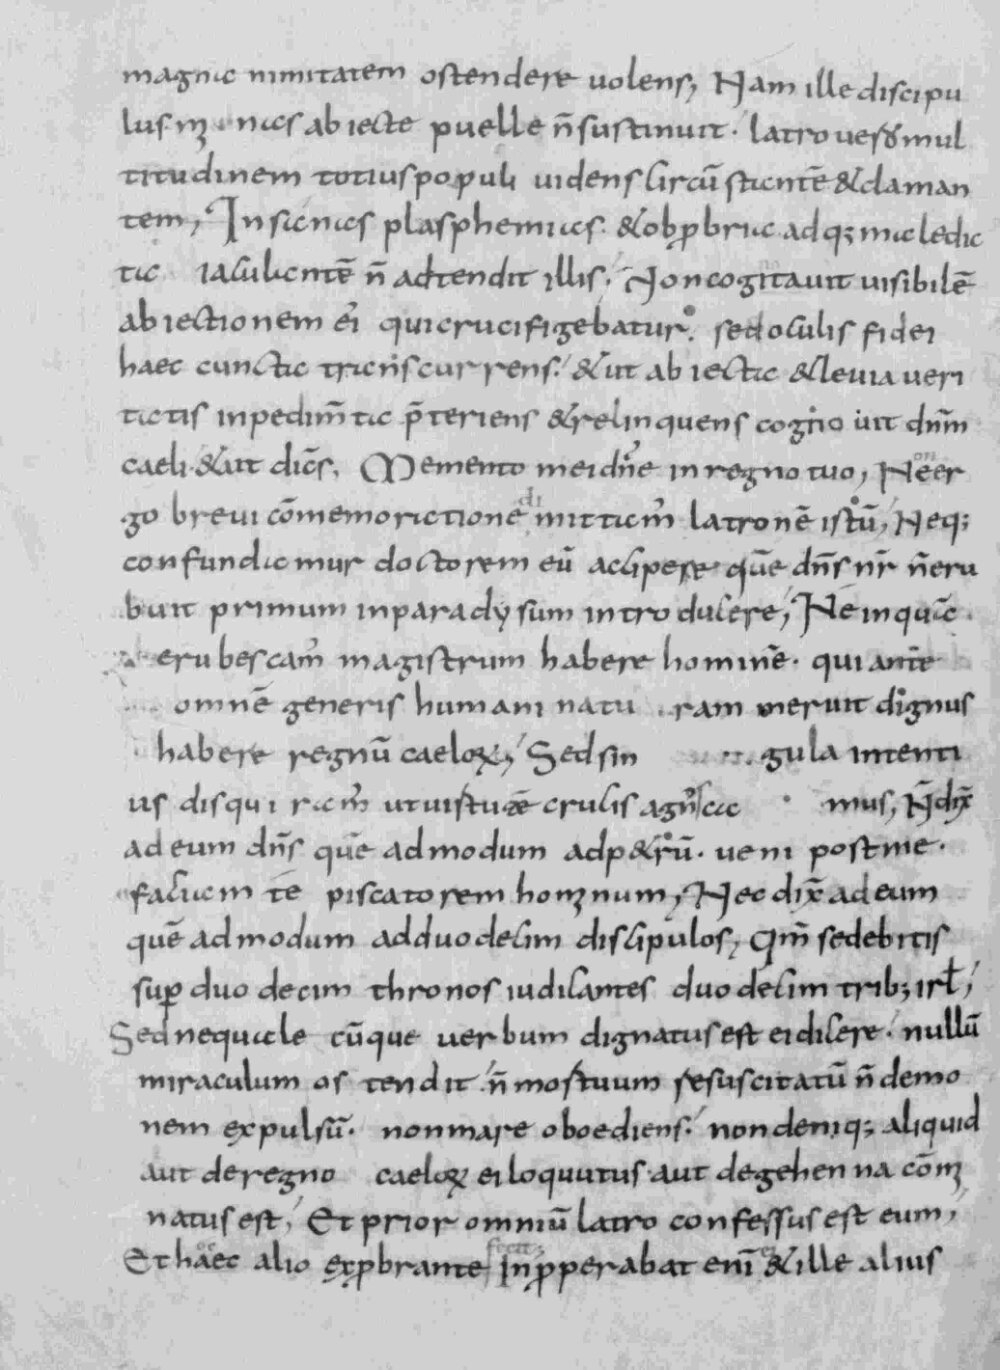 magna nimitatem ostendere uolens, Nam ille discipu
lus minas abiecte puelle n̄ sustinuit· latro uero mul
titudinem totius populi uidens circū stantē & claman
tem, Insanias plasphemias· & obp̄bria adq; maledic
ta iaculantē n̄ adtendit illis· Non cogitauit uisibilē
abiectionem ei qui crucifigebatur· sed oculis fidei
haec cuncta transcurrens· & ut abiecta & leuia ueri
tatis inpedim̄ta p̄teriens & relinquens cognouit dn̄m
caeli· & ait dic̄s, Memento mei dn̄e in regno tuo, Ne er
go breui cōmemoratione mittam̄ latronē istū, Neq;
confundamur doctorem eū accipere quē dn̄s nr̄ n̄ eru
buit primum in paradysum introducere, Ne inquā
erubescam̄ magistrum habere hominē· qui ante
omnē generis humani naturam meruit dignus
habere regnū caeloꝝ, Sed singula intenti
us disquiram̄ ut uirtutē crucis agnoscamus, N̄ dix̄
ad eum dn̄s quē admodum ad p&rū· ueni post me·
faciam te piscatorem hominum, Nec dix̄ ad eum
quē admodum ad duodecim discipulos, Qm̄ sedebitis
sup̄ duodecim thronos iudicantes duodecim trib; irl̄,
Sed ne quale cūque uerbum dignatus est ei dicere· nullū
miraculum ostendit· n̄ mortuum resuscitatū n̄ demo
nem expulsū· non mare oboediens· non deniq; aliquid
aut de regno caeloꝝ ei loquutus aut de gehenna cōmi
natus est, Et prior omniū latro confessus est eum,
Et haec alio exp̄brante Inp̄perabat enī & ille alius